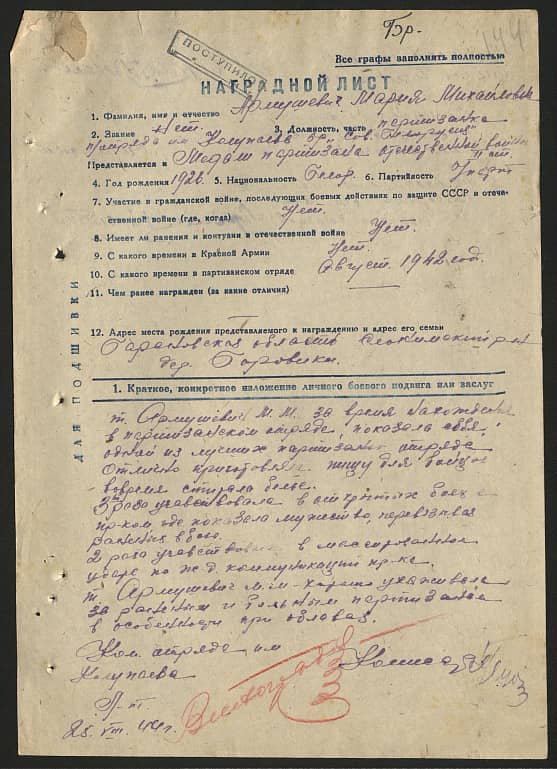 Гэр.
144
Все графы заполнять полностью
ПОСТУПИЛО
НАГРАДНОЙ ЛИСТ
1. Фамилия, имя и отчество Армушевич Мария Михайловна
2. Звание Нет 3. Должность, часть партизанка
отряда им Колупаева бр. "Сов. Беларусия"
Представляется к Медали партизана отечественной войны II ст.
4. Год рождения 1926 5. Национальность Белор. 6. Партийность
7. Участие в гражданской войне, последующих боевых действиях по защите СССР и отече-
ственной войне (где, когда) Нет.
8. Имеет ли ранения и контузии в отечественной войне Нет.
9. С какого времени в Красной Армии Нет.
10. С какого времени в партизанском отряде Август 1942 год.
11. Чем ранее награжден (за какие отличия) —
12. Адрес места рождения представляемого к награждению и адрес его семьи
область
дер. Боровики.
ДЛЯ ПОДШИВКИ
1. Краткое, конкретное изложение личного боевого подвига или заслуг
т. Армушевич М. М. за время нахождения
в партизанском отряде, показала себя,
одной из лучших партизанок отряда
Отлично приготовляла пищу для бойцов
вовремя стирала белье.
3 раза участвовала в открытых боях с
пр-ком, где показала мужество, перевязывая
раненых в бою.
2 раза участвовала в массированном
ударе по ж.д. коммуникаций пр-ка.
т. Армушевич М.М. хорошо ухаживала
за раненым и больным партизанам
в особенности при облавах.
Ком. отряда им Комиссар
Колупаева
25. VIII. 44 г.